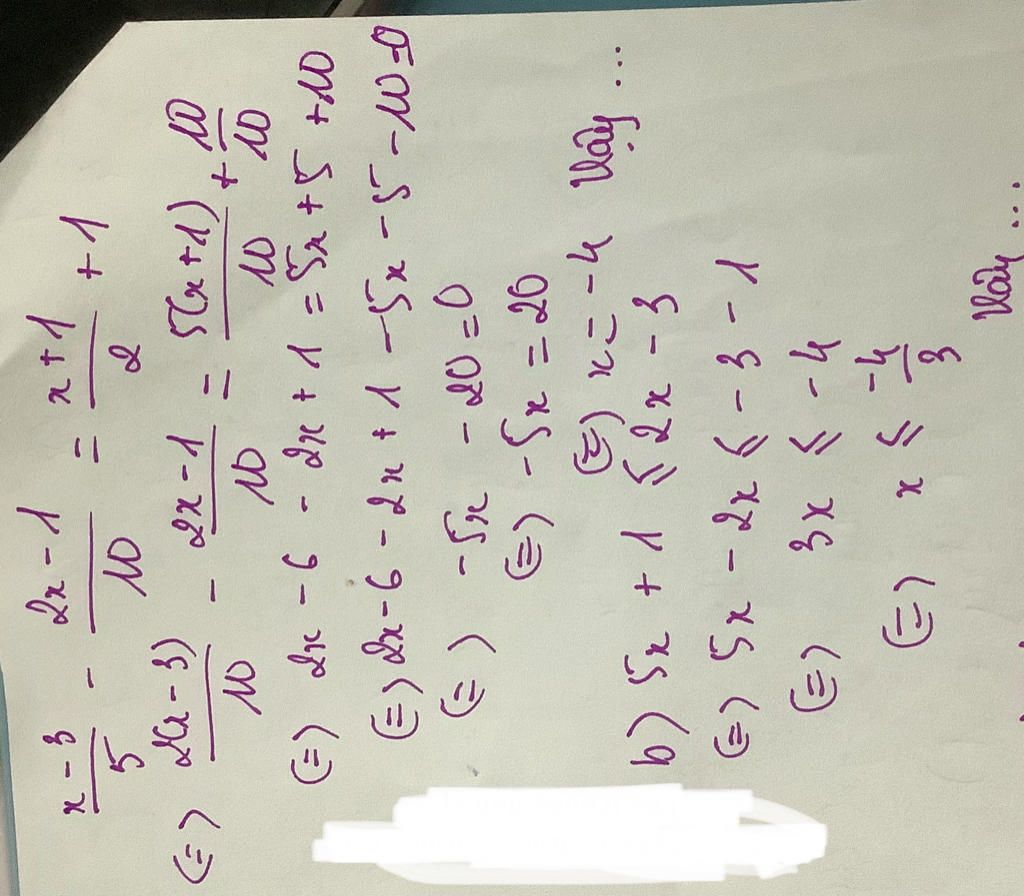 x-3/5 - 2x-1/10 = x+1/2 + 1
(=) 2(x-3)/10 - 2x-1/10 = 5(x+1)/10 + 10/10
(=) 2x-6 - 2x+1 = 5x+5+10
(=) 2x-6-2x+1-5x-5-10=0
(=) -5x -20=0
(=) -5x = 20
(=) x = -4 Vậy ...
b) 5x + 1 ⩽ 2x - 3
(=) 5x - 2x ⩽ -3 - 1
(=) 3x ⩽ -4
(=) x ⩽ -4/3
Vậy ...